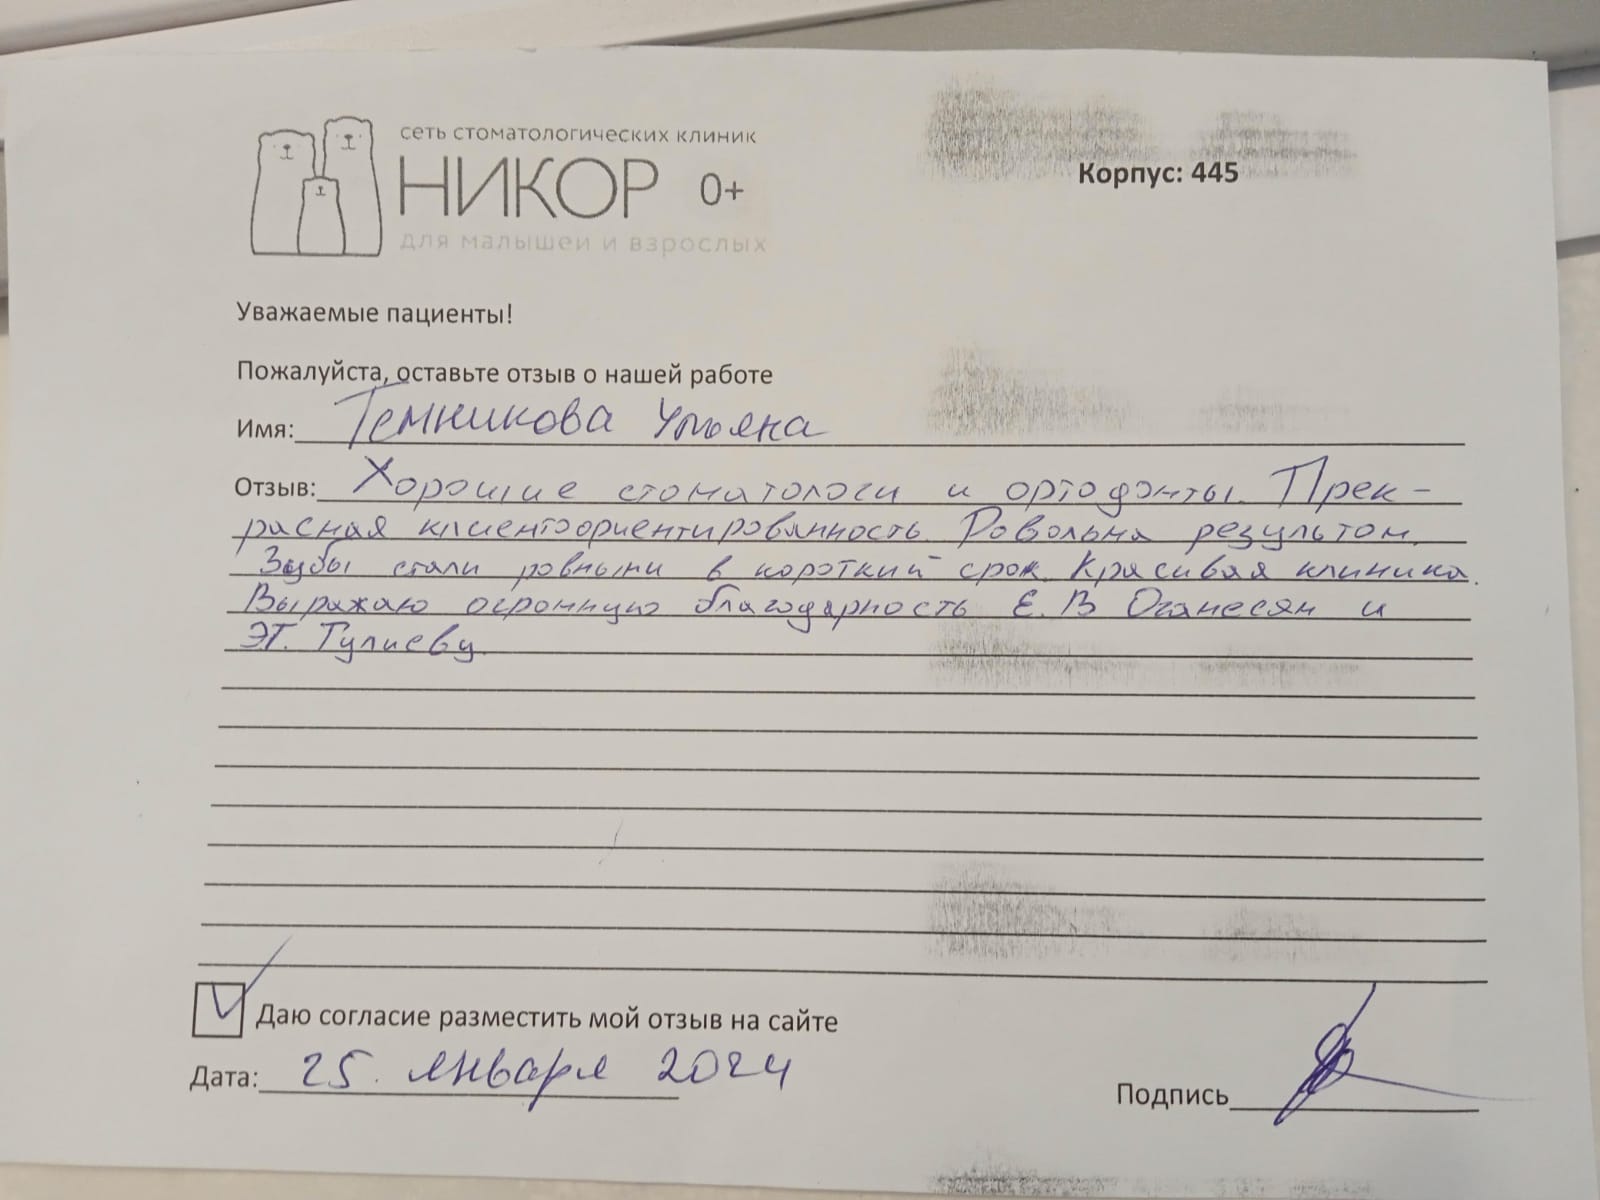 сеть стоматологических клиник
НИКОР 0+
для малышей и взрослых
Корпус: 445
Уважаемые пациенты!
Пожалуйста, оставьте отзыв о нашей работе
Имя: Темникова Ульяна
Отзыв: Хорошие стоматологи и ортодонты. Прек-
расная клиентоориентированность. Довольна результом.
Зубы стали ровными в короткий срок. Красивая клиника.
Выражаю огромную благодарность Е.В Оганесян и
Э.Г. Гулиеву.
Даю согласие разместить мой отзыв на сайте
Дата: 25. января 2024
Подпись